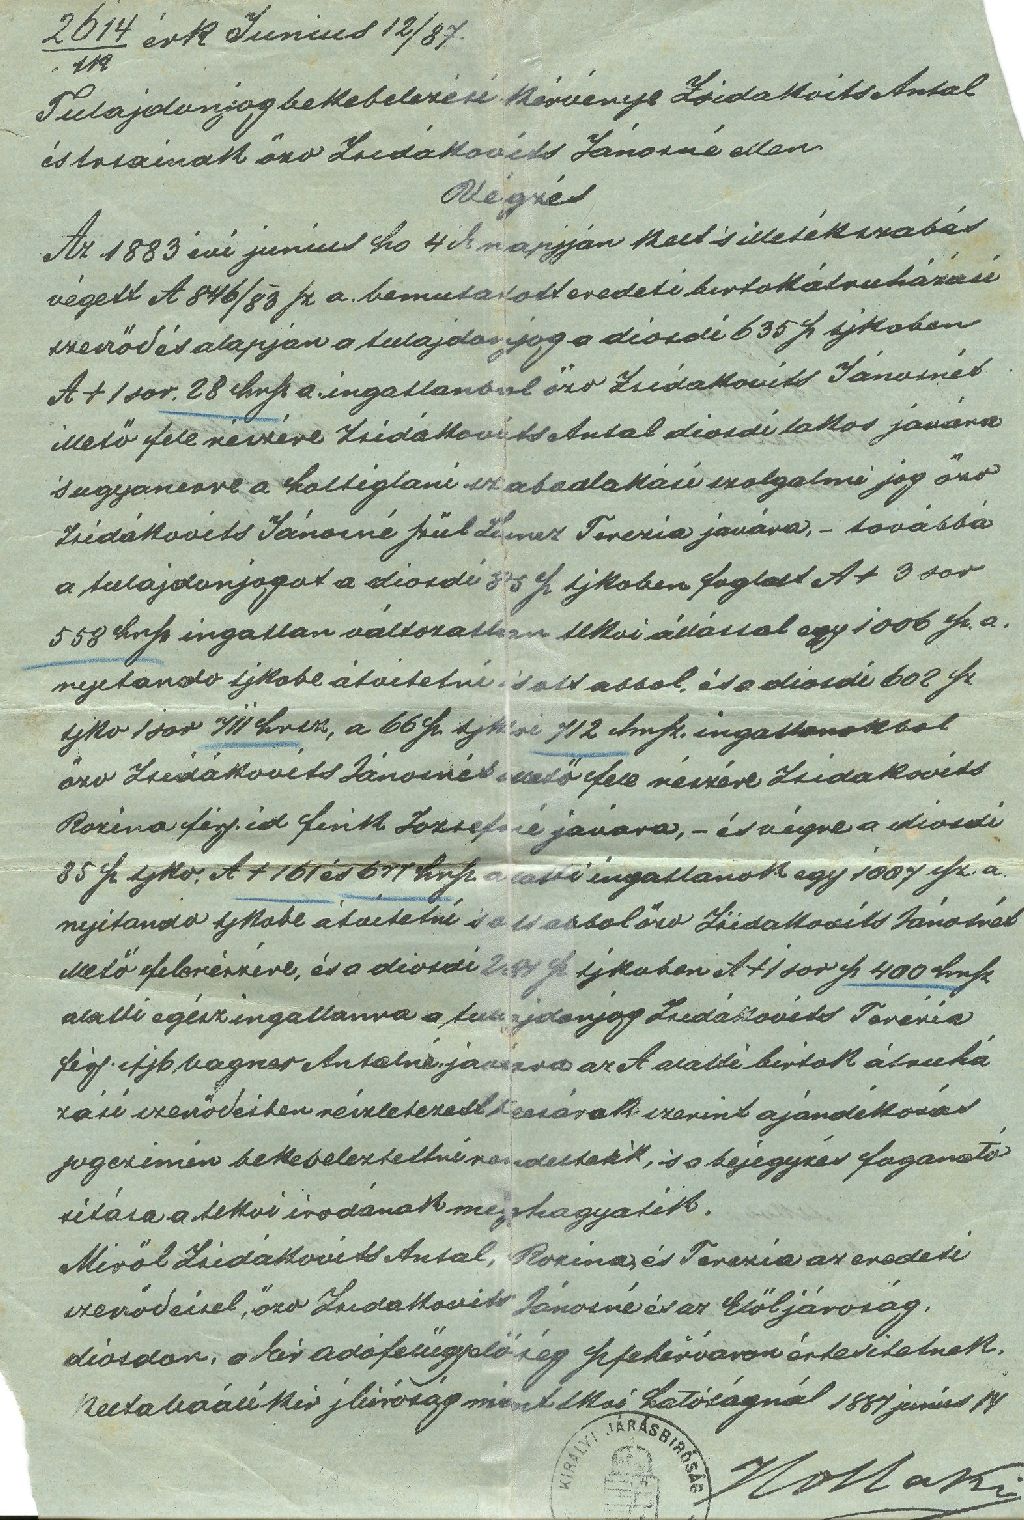 2614 érk Junius 12/87.
tk
Tulajdonjog bekebelezési kérvénye Zsidakovits Antal
és tsainak özv Zsidákovits Jánosné ellen
Végzés
Az 1883 évi junius hó 4én napján kelt s illetékszabás
végett A 846/83 sz a. bemutatott eredeti birtokátruházási
szerződés alapján a tulajdonjog a diosdi 635 sz tjkvben
A + 1 sor. 28 hrsz a. ingatlanbul özv Zsidakovits Jánosnét
illető fele részére Zsidákovits Antal diosdi lakos javára
s ugyanerre a holtiglani szabadlakási szolgalmi jog özv
Zsidákovits Jánosné szül Terezia javára, – továbbá
a tulajdonjogot a diosdi 85 sz tjkvben foglalt A + 3 sor
558 hrsz ingatlan változatlan tlkvi állással egy 1006 sz. a.
nyitando tjkvbe átvitetni s ott abbol, és a diosdi 602 sz
tjkv 1 sor 711 hrsz, a 66 sz tjkvi 712 hrsz. ingatlanokbol
özv Zsidákovits Jánosnét illető fele részére Zsidakovits
Rozina férj. id Fink Jozsefné javára, – és végre a diosdi
85 sz tjkv. A + 161 és 671 hrsz alatti ingatlanok egy 1007 sz. a.
nyitando tjkvbe átvitetni s ott abbol özv Zsidakovits Jánosnét
illető felerészére, és a diosdi sz tjkvben A + 1 sor sz 400 hrsz
alatti egész ingatlanra a tulajdonjog Zsidákovits Terézia
férj. ifjb Wagner Antalné javára az A alatti birtok átruhá
zási szerződésben részletezett szerint ajándékozás
jogczimén bekebeleztetni rendeltetik, s a bejegyzés foganato
sitása a tlkvi irodának meghagyatik.
Miről Zsidákovits Antal, Rozina, és Terezia az eredeti
szerződéssel, özv Zsidakovits Jánosné és az Elöljároság,
diosdon, a kir adófelügyelőség szfehérváron értesitetnek.
Kelt a kir jbiróság mint tlkvi hatóságnál 1887 június 14
KIRÁLYI JÁRÁSBIRÓSÁG